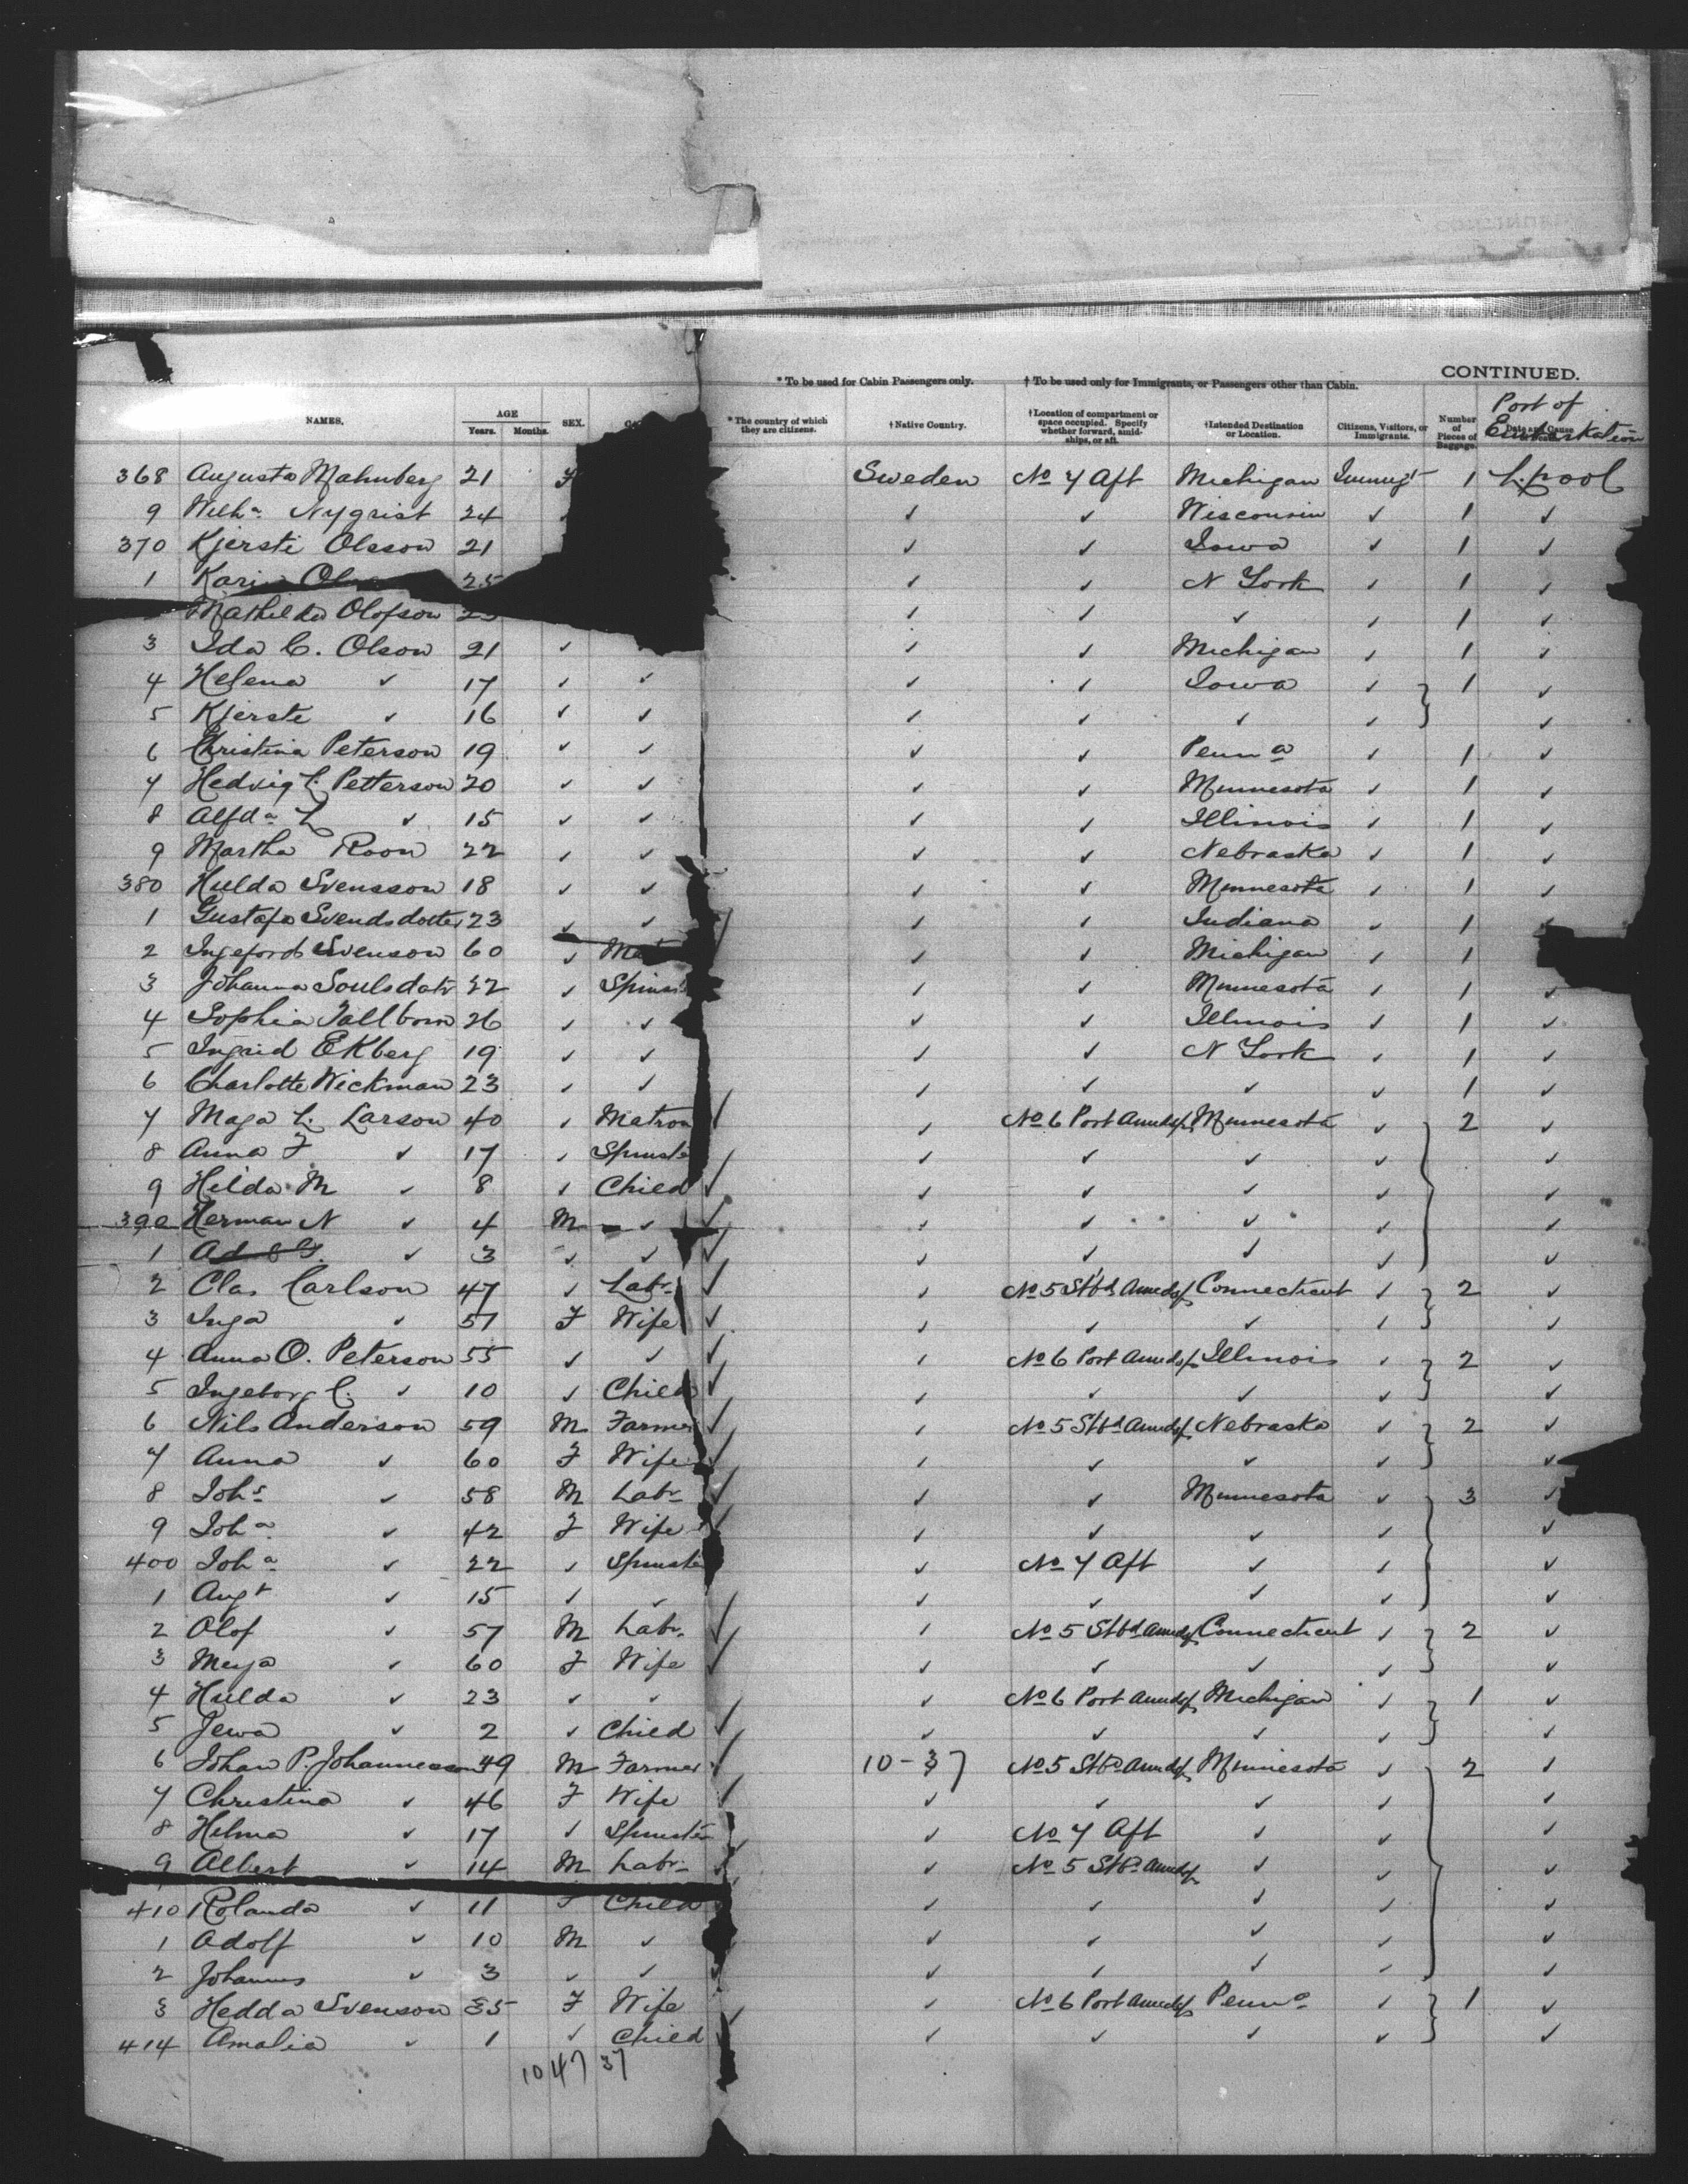 CONTINUED.
* To be used for Cabin Passengers only. † To be used only for Immigrants, or Passengers other than Cabin.
NAMES. AGE Years. Months. SEX. * The country of which they are citizens. † Native Country. † Location of compartment or space occupied. Specify whether forward, amidships, or aft. † Intended Destination or Location. Citizens, Visitors, or Immigrants. Number of Pieces of Baggage. Port of Embarkation
368 Augusta Malmberg 21 F Sweden No 7 Aft Michigan Immigt 1 L.pool
9 Wilha Nyqrist 24 ✓ ✓ Wisconsin ✓ 1 ✓
370 Kjersti Olsson 21 ✓ ✓ Iowa ✓ 1 ✓
1 Karin 25 ✓ ✓ N York ✓ 1 ✓
Mathilda Olofson ✓ ✓ ✓ ✓ 1 ✓
3 Ida C. Olson 21 ✓ ✓ ✓ Michigan ✓ 1 ✓
4 Helena ✓ 17 ✓ ✓ ✓ ✓ Iowa ✓ 1 ✓
5 Kjerste ✓ 16 ✓ ✓ ✓ ✓ ✓ ✓ ✓
6 Christina Peterson 19 ✓ ✓ ✓ ✓ Penna ✓ 1 ✓
7 Hedvig C. Petterson 20 ✓ ✓ ✓ ✓ Minnesota ✓ 1 ✓
8 Alfda L ✓ 15 ✓ ✓ ✓ ✓ Illinois ✓ 1 ✓
9 Martha Roon 22 ✓ ✓ ✓ ✓ Nebraska ✓ 1 ✓
380 Hulda Svensson 18 ✓ ✓ ✓ ✓ Minnesota ✓ 1 ✓
1 Gustafa Svendsdotter 23 ✓ ✓ ✓ ✓ Indiana ✓ 1 ✓
2 Svenson 60 ✓ ✓ ✓ Michigan ✓ 1
3 Johanna 22 ✓ Spinst ✓ ✓ Minnesota ✓ 1 ✓
4 Sophia Tallborn 26 ✓ ✓ ✓ ✓ Illinois ✓ 1 ✓
5 Ingrid Ekberg 19 ✓ ✓ ✓ ✓ N York ✓ 1 ✓
6 Charlotte Wickman 23 ✓ ✓ ✓ ✓ ✓ ✓ 1 ✓
7 Maja C. Larson 40 ✓ Matron ✓ ✓ No 6 Port Amidsp Minnesota ✓ 2 ✓
8 Anna F ✓ 17 ✓ Spinste ✓ ✓ ✓ ✓ ✓ ✓
9 Hilda M ✓ 8 ✓ Child ✓ ✓ ✓ ✓ ✓ ✓
390 Herman N ✓ 4 M ✓ ✓ ✓ ✓ ✓ ✓ ✓
1 ✓ 3 ✓ ✓ ✓ ✓ ✓ ✓ ✓ ✓
2 Clas Carlson 47 ✓ Labr ✓ ✓ No 5 Stbd Amidsp Connecticut ✓ 2 ✓
3 Inga ✓ 57 F Wife ✓ ✓ ✓ ✓ ✓ ✓
4 Anna O. Peterson 55 ✓ ✓ ✓ ✓ No 6 Port Amidsp Illinois ✓ 2 ✓
5 Ingeborg C. ✓ 10 ✓ Child ✓ ✓ ✓ ✓ ✓ ✓
6 Nils Anderson 59 M Farmer ✓ ✓ No 5 Stbd Amidsp Nebraska ✓ 2 ✓
7 Anna ✓ 60 F Wife ✓ ✓ ✓ ✓ ✓ ✓
8 Johs ✓ 58 M Labr ✓ ✓ ✓ Minnesota ✓ 3 ✓
9 Joha ✓ 42 F Wife ✓ ✓ ✓ ✓ ✓ ✓
400 Joha ✓ 22 ✓ Spinste ✓ No 7 Aft ✓ ✓ ✓
1 Augt ✓ 15 ✓ ✓ ✓ ✓ ✓ ✓ ✓ ✓
2 Olof ✓ 57 M Labr. ✓ ✓ No 5 Stbd Amidsp Connecticut ✓ 2 ✓
3 Meja ✓ 60 F Wife ✓ ✓ ✓ ✓ ✓ ✓
4 Hulda ✓ 23 ✓ ✓ ✓ No 6 Port Amidsp Michigan ✓ 1 ✓
5 Jewa ✓ 2 ✓ Child ✓ ✓ ✓ ✓ ✓ ✓
6 Johan P. Johannesson 49 M Farmer ✓ 10-37 No 5 Stbd Amidsp Minnesota ✓ 2 ✓
7 Christina ✓ 46 F Wife ✓ ✓ ✓ ✓ ✓ ✓
8 Hilma ✓ 17 ✓ Spinster ✓ No 7 Aft ✓ ✓ ✓
9 Albert ✓ 14 M Labr ✓ ✓ No 5 Stbd Amidsp ✓ ✓ ✓
410 Rolanda ✓ 11 F Child ✓ ✓ ✓ ✓ ✓
1 Adolf ✓ 10 M ✓ ✓ ✓ ✓ ✓ ✓
2 Johannes ✓ 3 ✓ ✓ ✓ ✓ ✓ ✓ ✓
3 Hedda Svenson 35 F Wife ✓ ✓ No 6 Port Amidsp Penna ✓ 1 ✓
414 Amalia ✓ 1 ✓ Child ✓ ✓ ✓ ✓ ✓ ✓
10 47 37